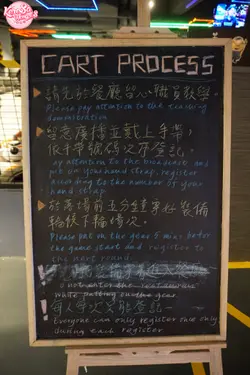 CART PROCESS
請先於餐廳留心職員教學.
Please pay attention to the teaching
demonstration
留意廣播並戴上手帶,
依手帶號碼次序登記.
pay attention to the broadcast and
put on your hand strap, register
according to the number of your
hand strap.
於落場前五分鐘穿好裝備
輪候下輪場次.
Please put on the gear 5 mins before
the game start and register to
the next round.
enter the restaurant
while putting on the gear.
每人每次只能登記一
Everyone can only register once only
during each register